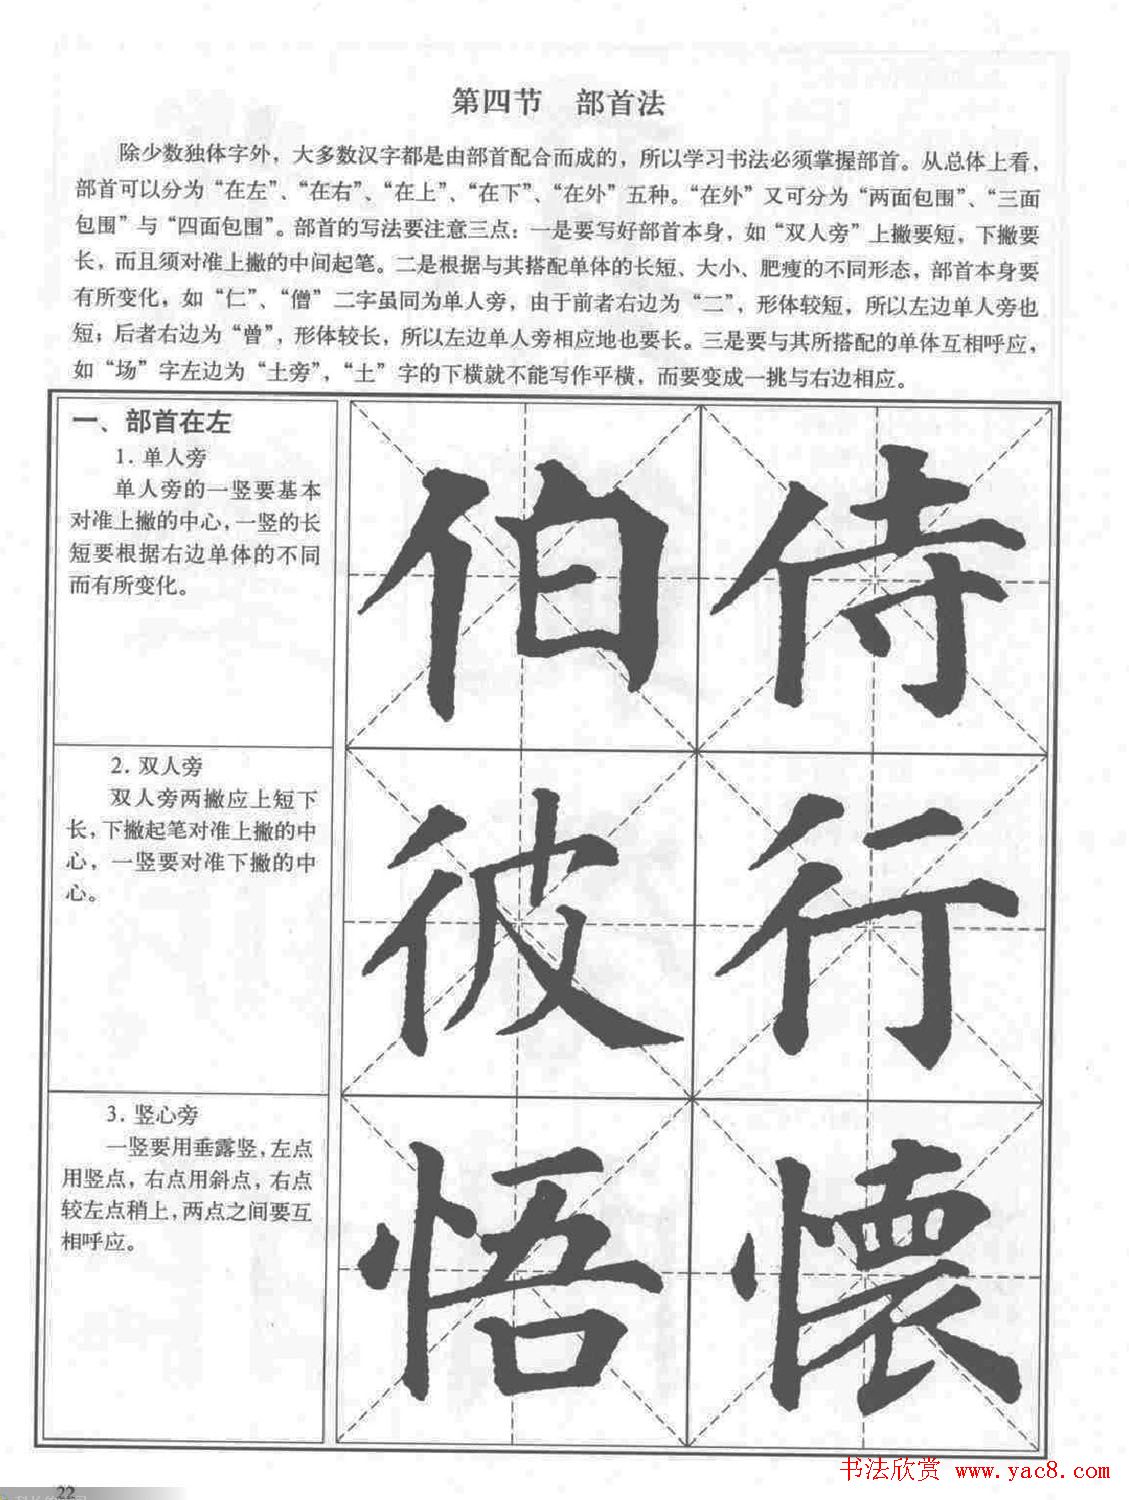 第四节 部首法
除少数独体字外，大多数汉字都是由部首配合而成的，所以学习书法必须掌握部首。从总体上看，
部首可以分为“在左”、“在右”、“在上”、“在下”、“在外”五种。“在外”又可分为“两面包围”、“三面
包围”与“四面包围”。部首的写法要注意三点：一是要写好部首本身，如“双人旁”上撇要短，下撇要
长，而且须对准上撇的中间起笔。二是根据与其搭配单体的长短、大小、肥瘦的不同形态，部首本身要
有所变化，如“仁”、“僧”二字虽同为单人旁，由于前者右边为“二”，形体较短，所以左边单人旁也
短；后者右边为“曾”，形体较长，所以左边单人旁相应地也要长。三是要与其所搭配的单体互相呼应，
如“场”字左边为“土旁”，“土”字的下横就不能写作平横，而要变成一挑与右边相应。
一、部首在左
1. 单人旁
单人旁的一竖要基本
对准上撇的中心，一竖的长
短要根据右边单体的不同
而有所变化。
伯侍
2. 双人旁
双人旁两撇应上短下
长，下撇起笔对准上撇的中
心，一竖要对准下撇的中
心。
彼行
3. 竖心旁
一竖要用垂露竖，左点
用竖点，右点用斜点，右点
较左点稍上，两点之间要互
相呼应。
悟懷
书法欣赏 www.yac8.com
22